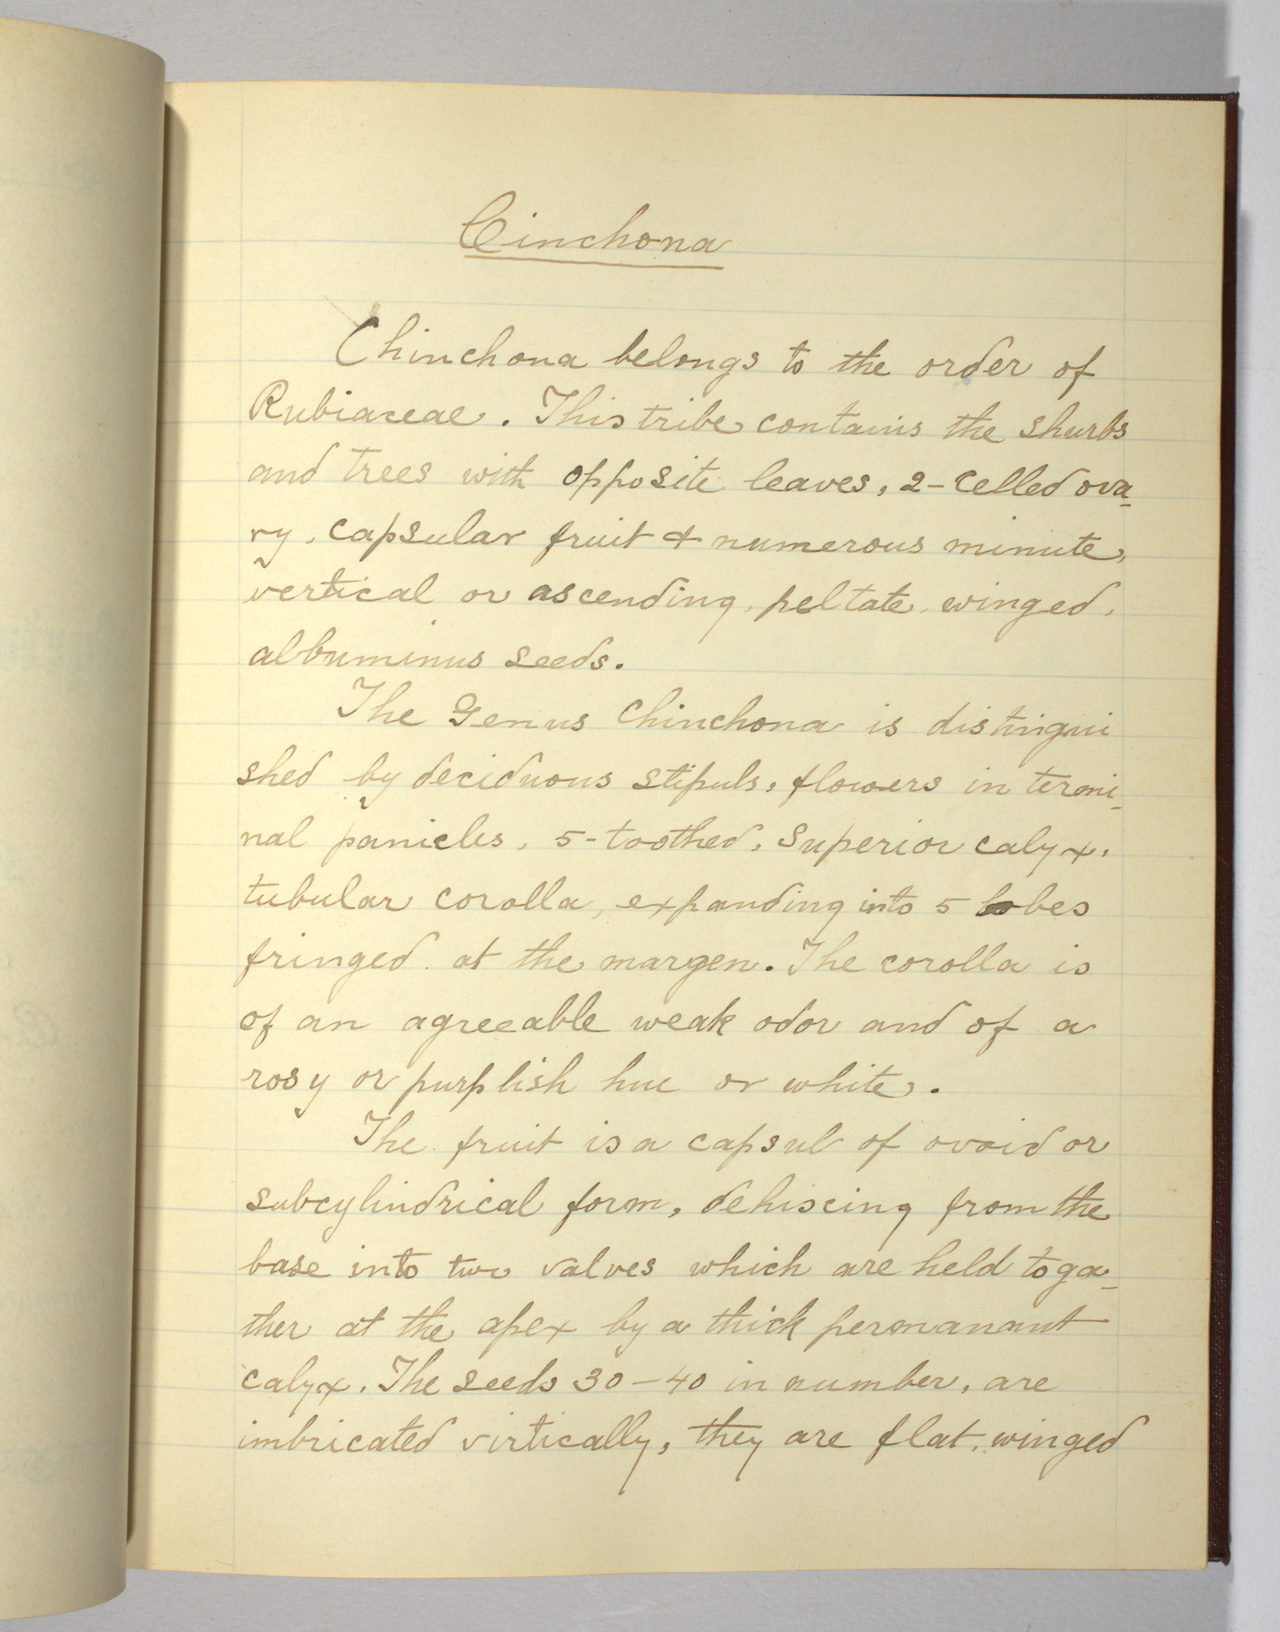 Cinchona
Chinchona belongs to the order of
Rubiaceae. This tribe contains the shurbs
and trees with opposite leaves, 2-celled ova-
ry, capsular fruit & numerous minute,
vertical or ascending, peltate, winged,
albuminus seeds.
The Genus Chinchona is distingui
shed by deciduous stipuls, flowers in termi-
nal panicles, 5-toothed, superior calyx,
tubular corolla, expanding into 5 lobes
fringed at the margen. The corolla is
of an agreeable weak odor and of a
rosy or purplish hue or white.
The fruit is a capsul of ovoid or
subcylindrical form, dehiscing from the
base into two valves which are held toga-
ther at the apex by a thick permanant
calyx. The seeds 30-40 in number, are
imbricated virtically, they are flat, winged